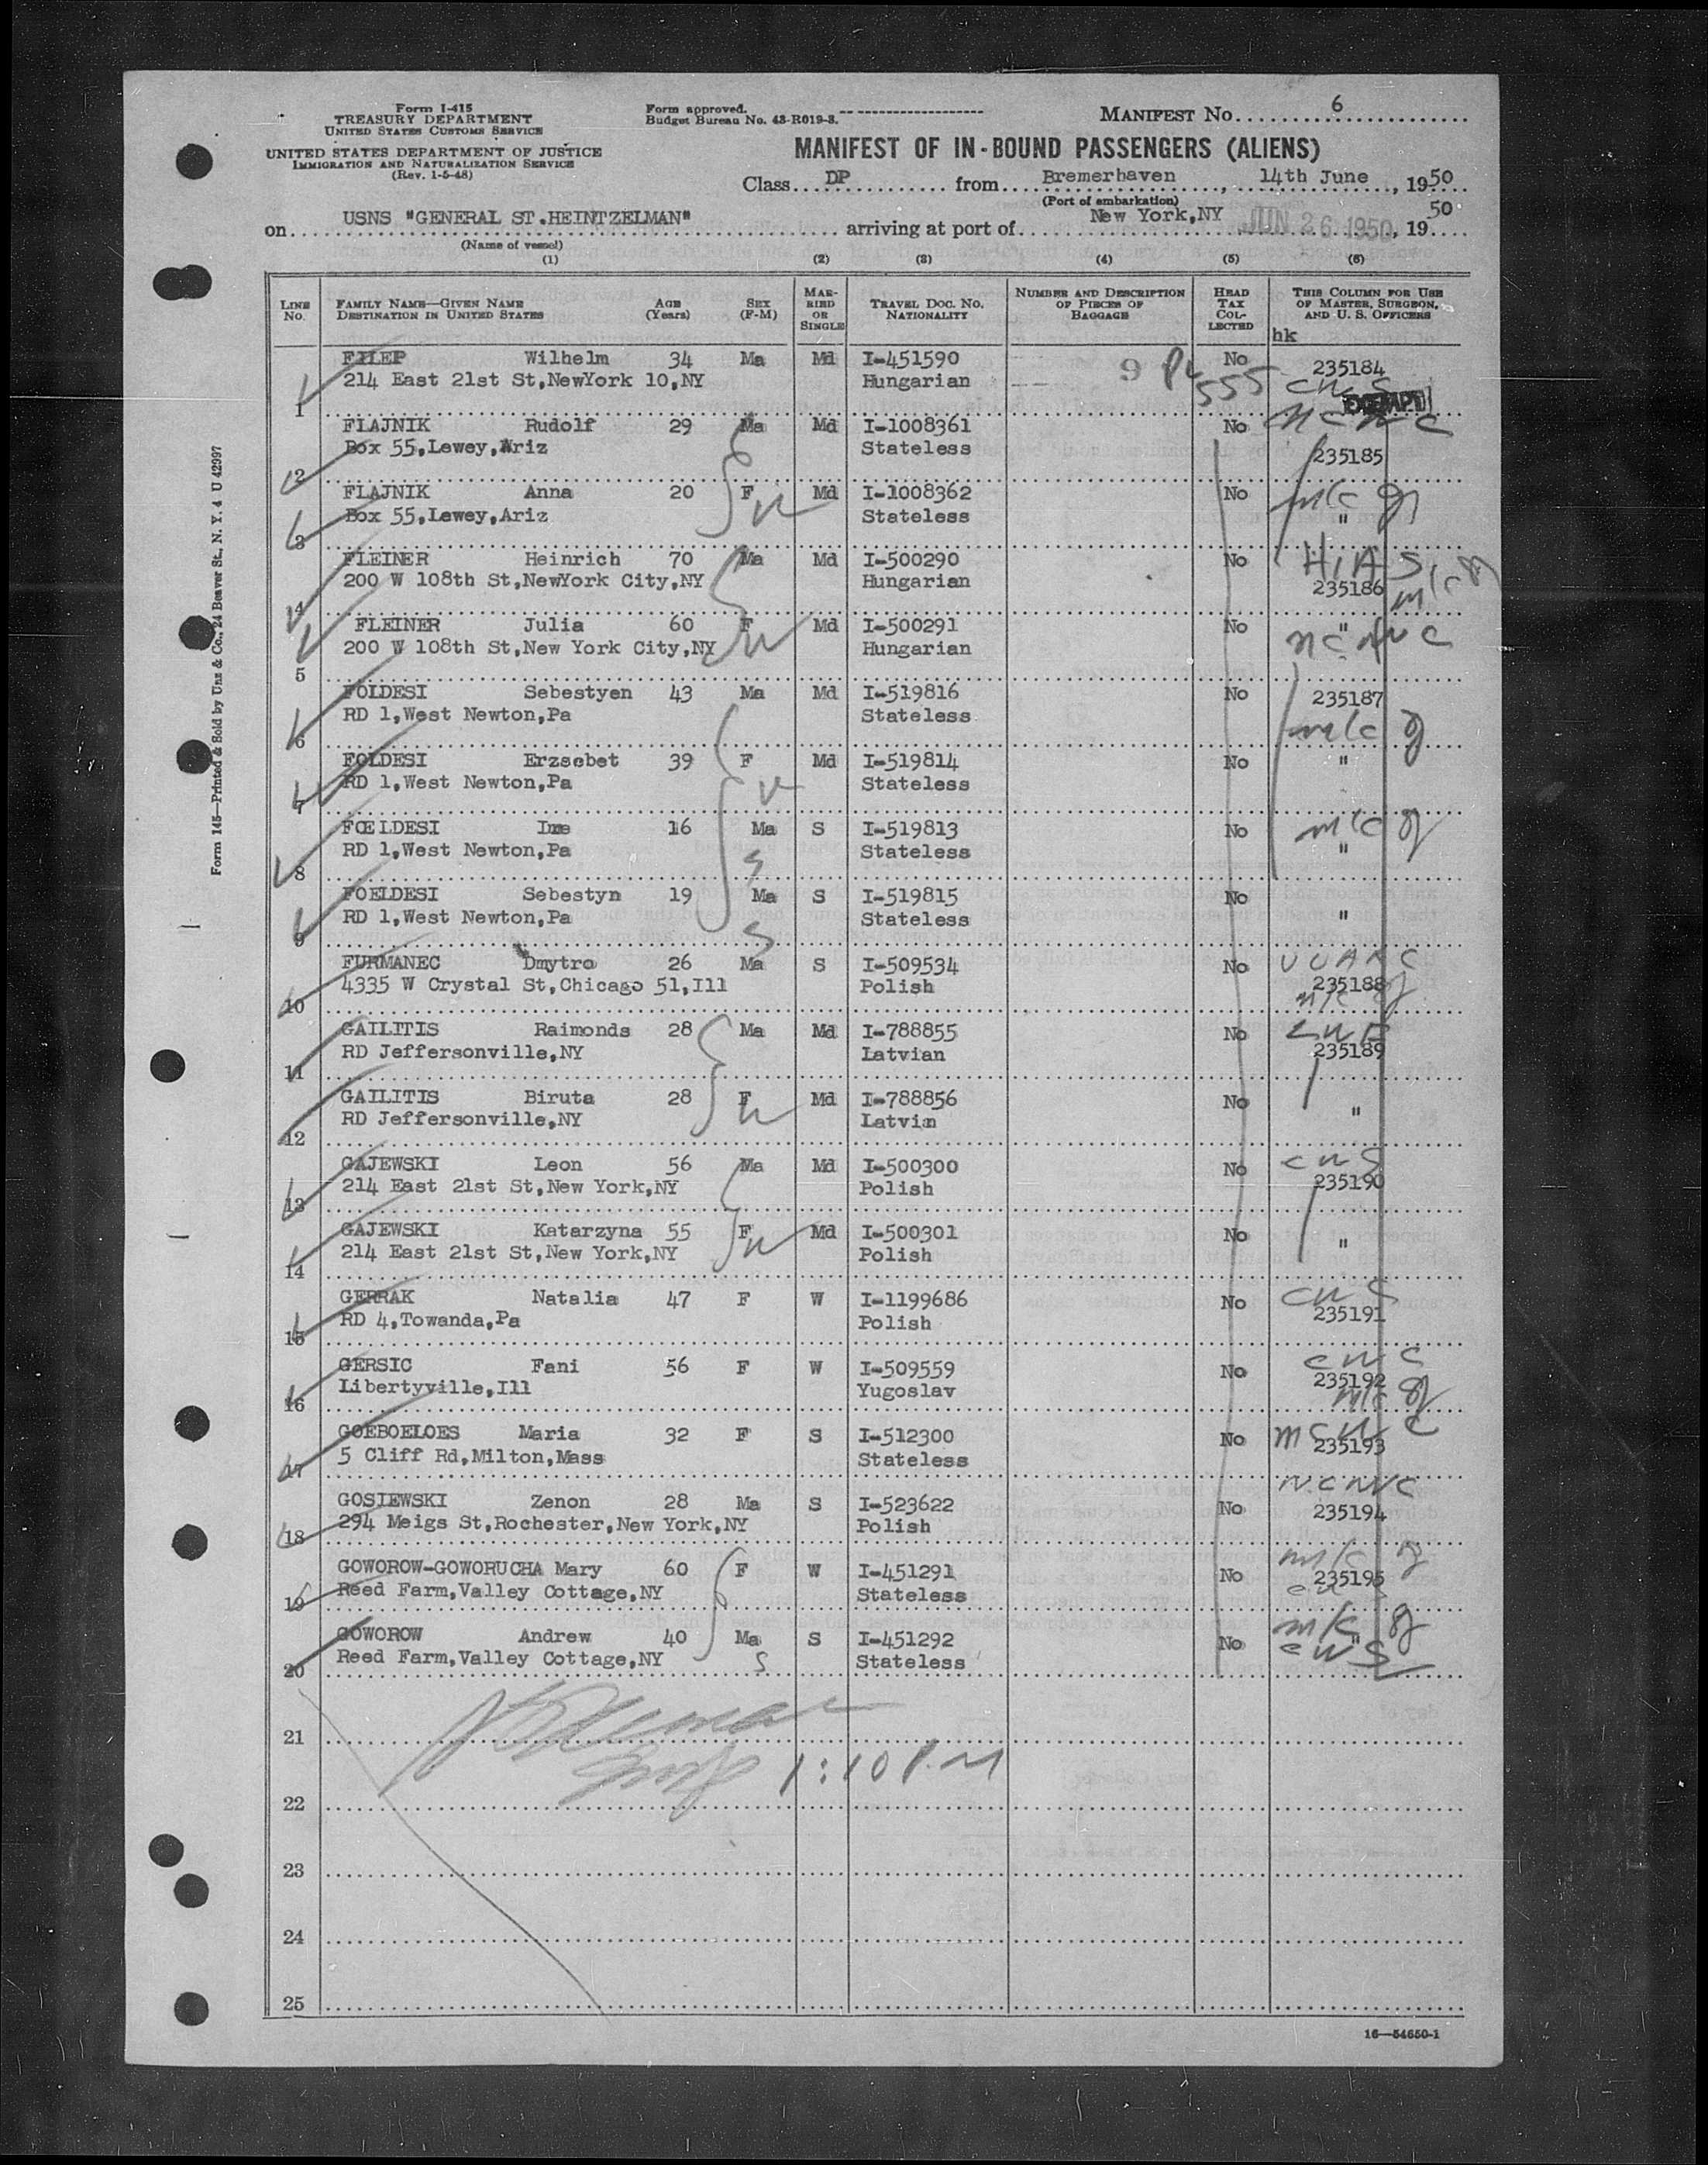 Form I-415
TREASURY DEPARTMENT
UNITED STATES CUSTOMS SERVICE
UNITED STATES DEPARTMENT OF JUSTICE
IMMIGRATION AND NATURALIZATION SERVICE
(Rev. 1-5-48)
Form approved.
Budget Bureau No. 43-R019-3.
MANIFEST No. 6
MANIFEST OF IN-BOUND PASSENGERS (ALIENS)
Class DP from Bremerhaven, 14th June, 1950
(Port of embarkation)
on USNS "GENERAL ST.HEINTZELMAN" arriving at port of New York,NY JUN 26 1950, 1950
(Name of vessel)
(1) (2) (3) (4) (5) (6)
LINE No. FAMILY NAME—GIVEN NAME DESTINATION IN UNITED STATES AGE (Years) SEX (F-M) MARRIED OR SINGLE TRAVEL DOC. NO. NATIONALITY NUMBER AND DESCRIPTION OF PIECES OF BAGGAGE HEAD TAX COLLECTED THIS COLUMN FOR USE OF MASTER, SURGEON, AND U. S. OFFICERS
hk
FILEP Wilhelm 34 Ma Md I-451590 No 235184
1 214 East 21st St,NewYork 10,NY Hungarian 9 555 CWS
EXEMPT
FLAJNIK Rudolf 29 Ma Md I-1008361 No NCWC
2 Box 55,Lewey,Ariz Stateless 235185
FLAJNIK Anna 20 F Md I-1008362 No
3 Box 55,Lewey,Ariz Stateless "
FLEINER Heinrich 70 Ma Md I-500290 No HIAS
4 200 W 108th St,NewYork City,NY Hungarian 235186
FLEINER Julia 60 F Md I-500291 No "
5 200 W 108th St,New York City,NY Hungarian NCWC
FOLDESI Sebestyen 43 Ma Md I-519816 No 235187
6 RD 1,West Newton,Pa Stateless
FOLDESI Erzsebet 39 F Md I-519814 No "
7 RD 1,West Newton,Pa Stateless
FOELDESI Ime 16 Ma S I-519813 No
8 RD 1,West Newton,Pa Stateless "
FOELDESI Sebestyn 19 Ma S I-519815 No
9 RD 1,West Newton,Pa Stateless "
FURMANEC Dmytro 26 Ma S I-509534 No UUARC
10 4335 W Crystal St,Chicago 51,Ill Polish 235188
GAILITIS Raimonds 28 Ma Md I-788855 No
11 RD Jeffersonville,NY Latvian 235189
GAILITIS Biruta 28 F Md I-788856 No
12 RD Jeffersonville,NY Latvin "
GAJEWSKI Leon 56 Ma Md I-500300 No CWS
13 214 East 21st St,New York,NY Polish 235190
GAJEWSKI Katarzyna 55 F Md I-500301 No
14 214 East 21st St,New York,NY Polish "
GERRAK Natalia 47 F W I-1199686 No CWS
15 RD 4,Towanda,Pa Polish 235191
GERSIC Fani 56 F W I-509559 No
16 Libertyville,Ill Yugoslav 235192
GOEBOELOES Maria 32 F S I-512300 No
17 5 Cliff Rd,Milton,Mass Stateless 235193
GOSIEWSKI Zenon 28 Ma S I-523622 No NCWC
18 294 Meigs St,Rochester,New York,NY Polish 235194
GOWOROW-GOWORUCHA Mary 60 F W I-451291 No
19 Reed Farm,Valley Cottage,NY Stateless 235195
GOWOROW Andrew 40 Ma S I-451292 No "
20 Reed Farm,Valley Cottage,NY Stateless CWS
21
1:10 P.M
22
23
24
25
16—54650-1
Form 145—Printed & Sold by Unz & Co., 24 Beaver St., N. Y. 4 U 42997